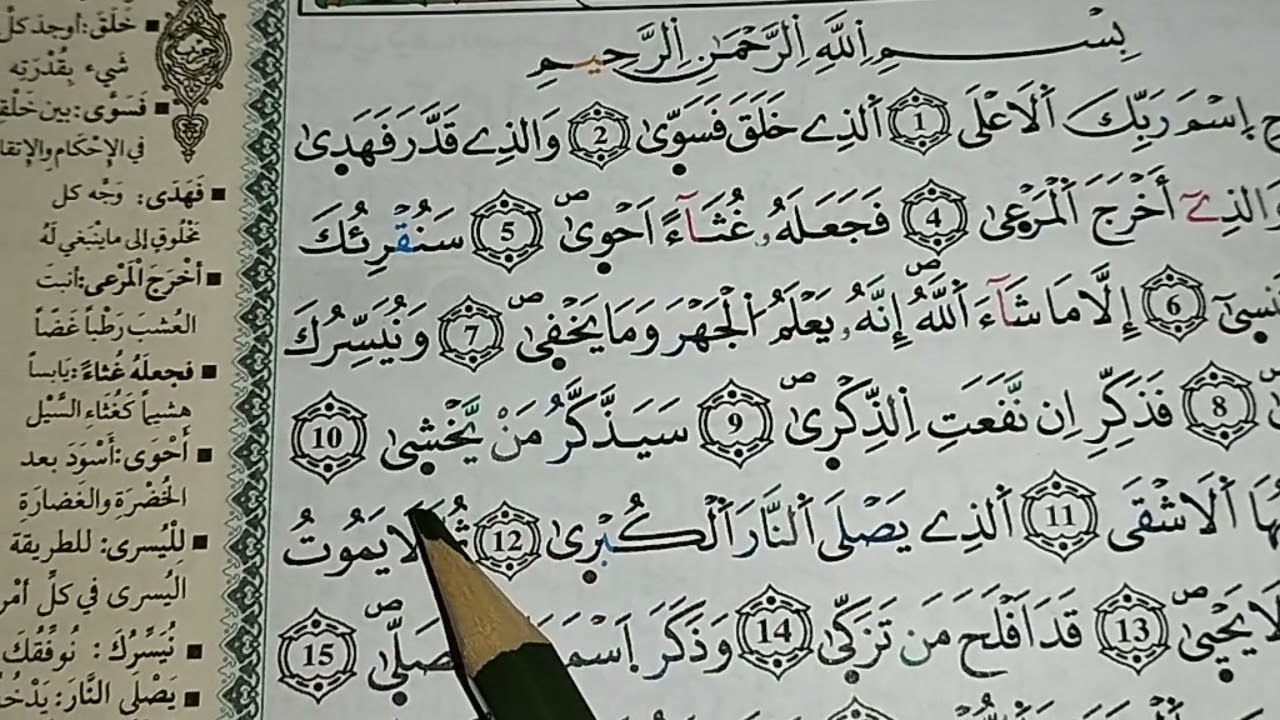 بِسْمِ اِ۬للَّهِ اِ۬لرَّحْمَٰنِ اِ۬لرَّحِيمِ
اِ۪سْمَ رَبِّكَ اَ۬لَاعْلَى 1 اَ۬لذِے خَلَقَ فَسَوّ۪ىٰ 2 وَالذِے قَدَّرَ فَهَد۪ىٰ
وَالذِےٓ أَخْرَجَ اَ۬لْمَرْع۪ىٰ 4 فَجَعَلَهُۥ غُثَآءً اَحْو۪ىٰ ص 5 سَنُقْرِئُكَ
إِلَّا مَا شَآءَ اَ۬للَّهُ ص إِنَّهُۥ يَعْلَمُ اُ۬لْجَهْرَ وَمَا يَخْف۪ىٰ ص 7 وَنُيَسِّرُكَ 6
8 فَذَكِّرِ اِن نَّفَعَتِ اِ۬لذِّكْر۪ىٰ ص 9 سَيَذَّكَّرُ مَنْ يَّخْش۪ىٰ 10
اَ۬لَاشْقَى 11 اَ۬لذِے يَصْلَى اَ۬لنَّارَ اَ۬لْكُبْر۪ىٰ 12 ثُمَّ لَا يَمُوتُ
يَحْي۪ىٰ ص 13 قَدَ اَفْلَحَ مَن تَزَكّ۪ىٰ 14 وَذَكَرَ اَ۪سْمَ فَصَلّ۪ىٰ ص 15
خَلَقَ: أوجد كل
شَيْء بِقُدْرَتِه
فَسَوَّى: بين خَلْقه
في الإحْكَام والإتقا
فَهَدَى: وَجَّه كل
مَخْلُوقٍ إلى ما ينْبَغي لَهُ
أَخْرَجَ الْمَرْعى: أنبتَ
العُشبَ رَطْباً غَضّاً
فجعلَهُ غُثاءً: يابساً
هشيماً كَغُثاءِ السَّيْل
أَحْوَى: أَسْوَدَ بعد
الخُضْرَةِ والغَضارَةِ
لِلْيُسرى: للطريقة
اليُسرى في كلِّ أمْر
نُيَسِّرُكَ: نُوفِّقُكَ
يَصْلَى النَّارَ: يَدْخُلُ